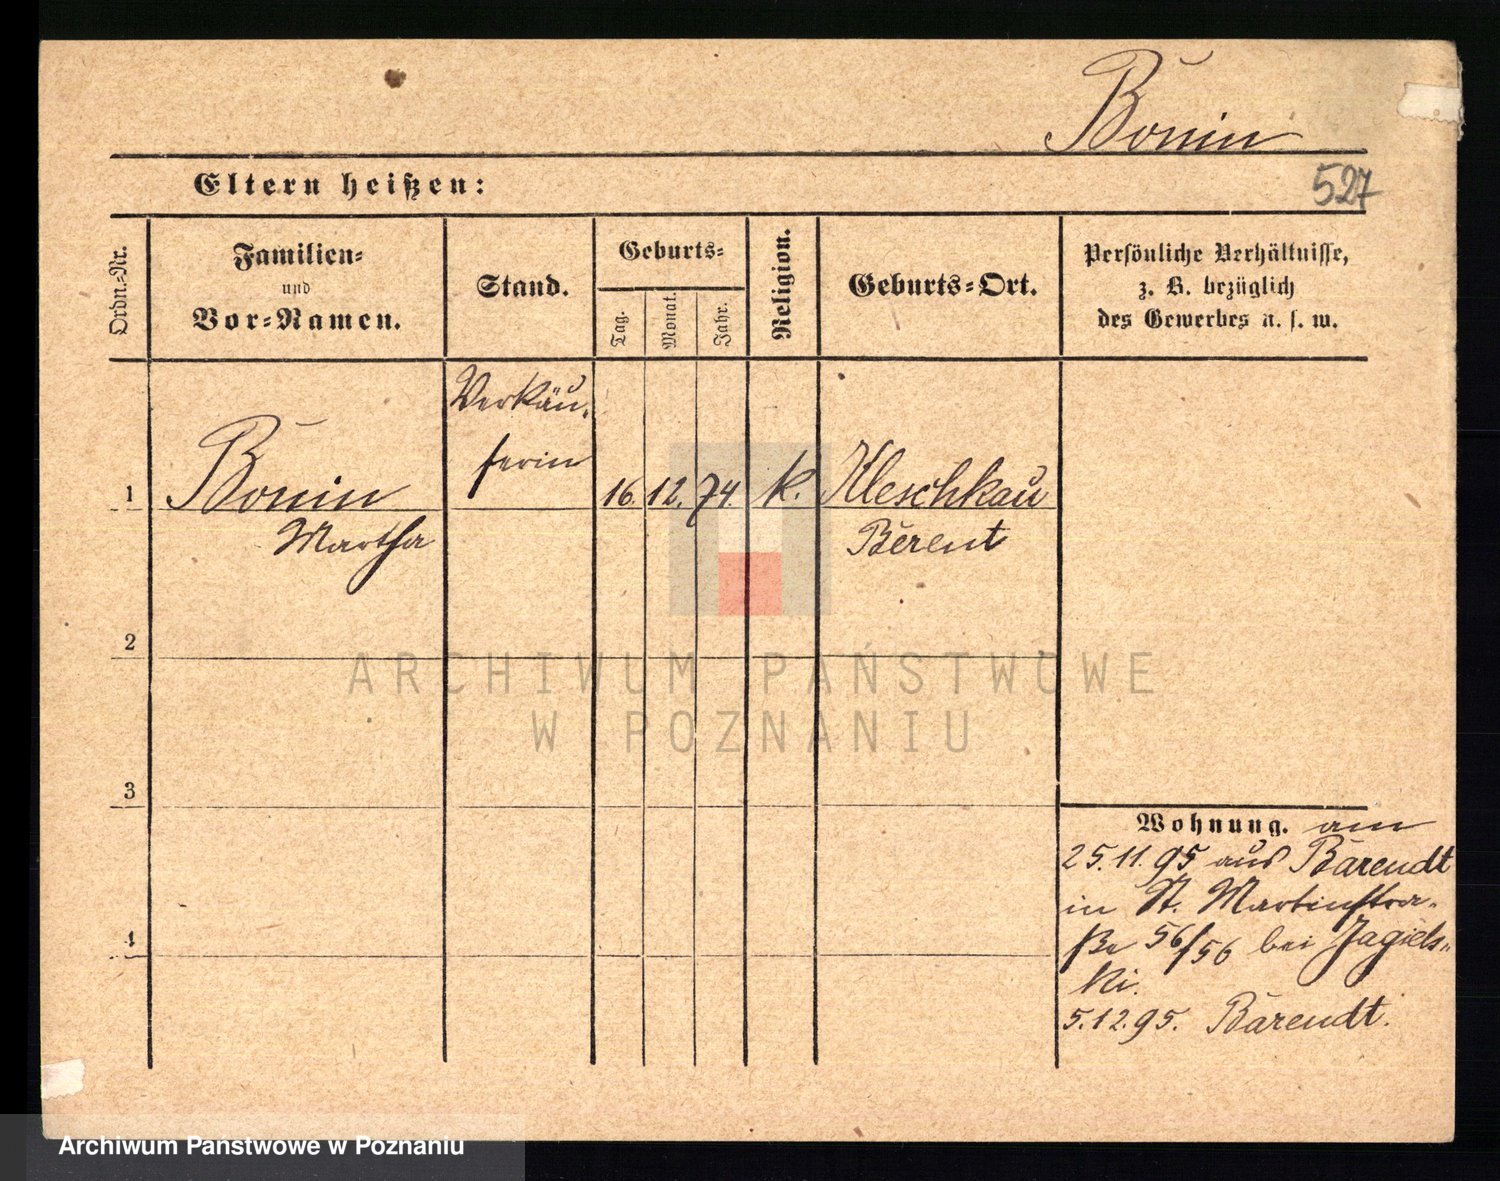 Bonin
Eltern heißen:
527
Ordn.-Nr.
Familien-
und
Vor-Namen.
Stand.
Geburts-
Tag.
Monat.
Jahr.
Religion.
Geburts-Ort.
Persönliche Verhältnisse,
z. B. bezüglich
des Gewerbes u. s. w.
Verkäu-
ferin
1 Bonin 16. 12. 74. k. Kleschkau
Martha Berent
2
3
4
Wohnung. am
25.11.95 aus Barendt
in St. Martinstra-
ße 56/56 bei Jagiels-
ki.
5.12.95. Barendt.
ARCHIWUM PAŃSTWOWE
W POZNANIU
Archiwum Państwowe w Poznaniu